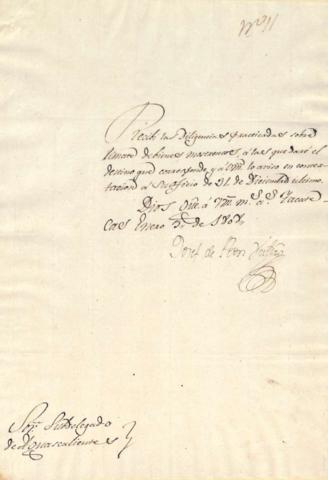 Nº 11
Recibí las Diligencias practicadas sobre
remate de bienes mostrencos, á las que daré el
destino que corresponde, y á Vm. lo aviso en contex-
tacion á su oficio de 31. de Diciembre ultimo.
Dios gũe. á Vm. m.s a.s Zacate-
cas Enero de 1807.
Sor. Subdelegado
de Aguascalientes